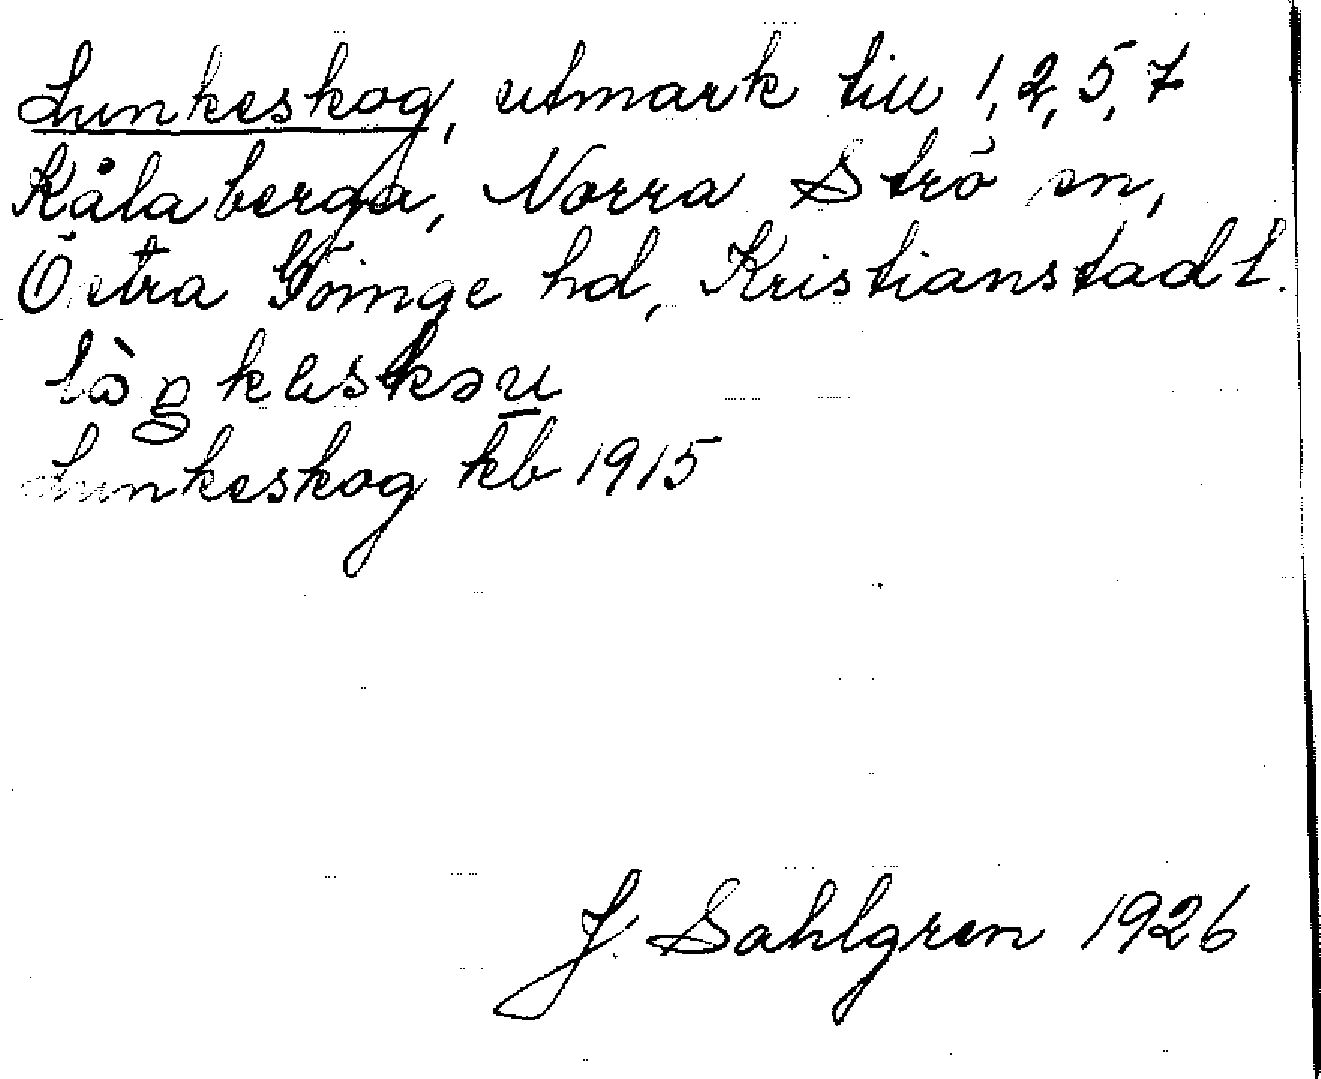 Lunkeskog, utmark till 1, 2, 5, 7
Kålaberga, Norra Strö sn,
Östra Göinge hd, Kristianstad l.
Lunkeskog kb 1915
J. Sahlgren 1926